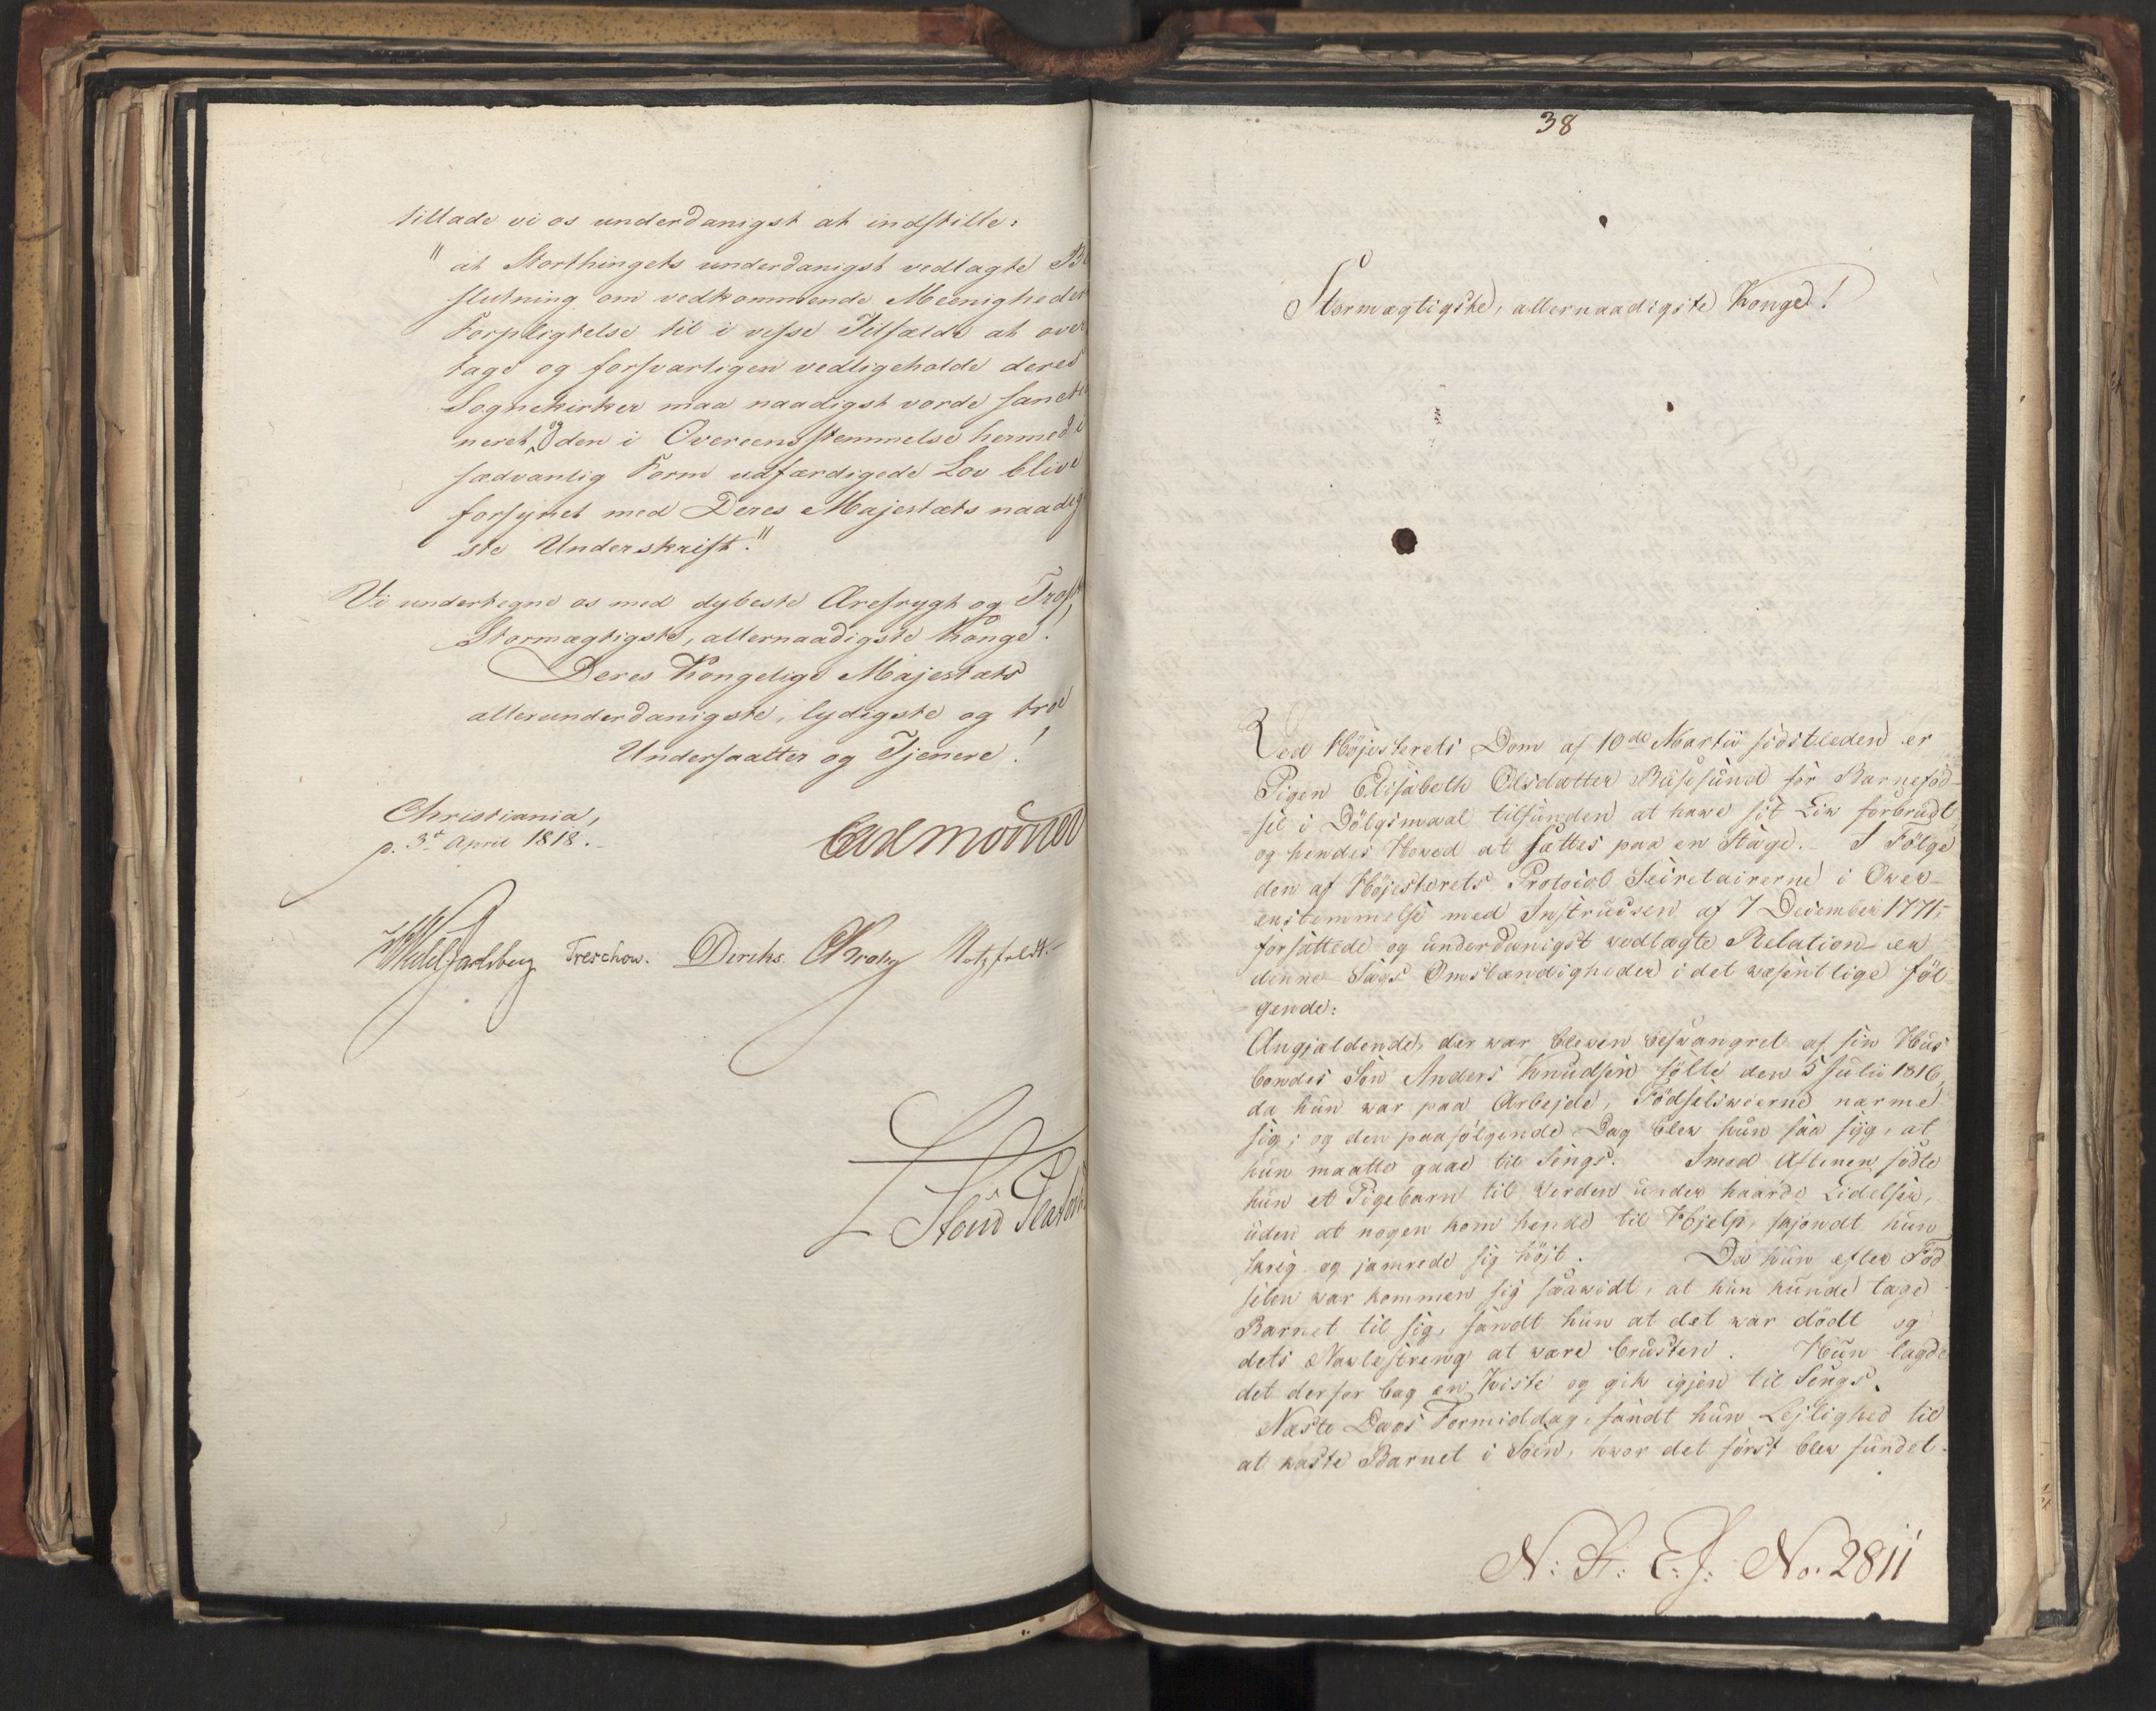 tillade vi os underdanigst at indstille:
"at Storthingets underdanigst vedlagte Be
slutning om vedkommende Meenigheders
Forpligtelse til i visse Tilfælde at over
tage og forsvarligen vedligeholde deres
Sognekirker maa naadigst vorde sanctio
neret, og den i Overeensstemmelse hermed i
sædvanlig Form udfærdigede Lov blive
forsynet med Deres Majestæts naadig
ste Underskrift."
Vi undertegne os med dybeste Ærefrygt og Troskab
Stormægtigste, allernaadigste Konge!
Deres Kongelige Majestæts
allerunderdanigste, lydigste og troe
Undersaatter og Tjenere!
Christiania,
p. 3die April 1818.
Carl Mörner
Wedel Jarlsberg Treschow. Diriks. Krohg Motzfeldt.
38
Stormægtigste, allernaadigste Konge!
Ved Höjesterets Dom af 10de Martii sidstleden er
Pigen Elisabeth Olsdatter Busesund for Barneföd-
sel i Dölgsmaal tilfunden at have sit Liv forbrudt,
og hendes Hoved at sættes paa en Stage. I Fölge
den af Höjesterets Protocol Secretairerne i Over-
enstemmelse med Instruxen af 7 December 1771,
forfattede og underdanigst vedlagte Relation er
denne Sags Omstændigheder i det væsentlige föl-
gende:
Angjældende, der var bleven besvangret af sin Hus
bondes Sön Anders Knudsen fölte den 5 Julii 1816,
da hun var paa Arbejde, Födselsveerne nærme
sig; og den paafölgende Dag blev hun saa syg, at
hun maatte gaae til Sengs. Imod Aftenen födte
hun et Pigebarn til Verden under haarde Lidelser,
uden at nogen kom hende til Hjelp, skjöndt hun
skreg og jamrede sig höjt. Da hun efter Föd
selen var kommen sig saavidt, at hun kunde tage
Barnet til sig, fandt hun at det var dödt og
dets Navlestreng at være brusten. Hun lagde
det derfor bag en Kiste og gik igjen til Sengs.
Næste Dags Formiddag, fandt hun Lejlighed til
at kaste Barnet i Söen, hvor det först blev fundet
N: St: E: J: No. 2811